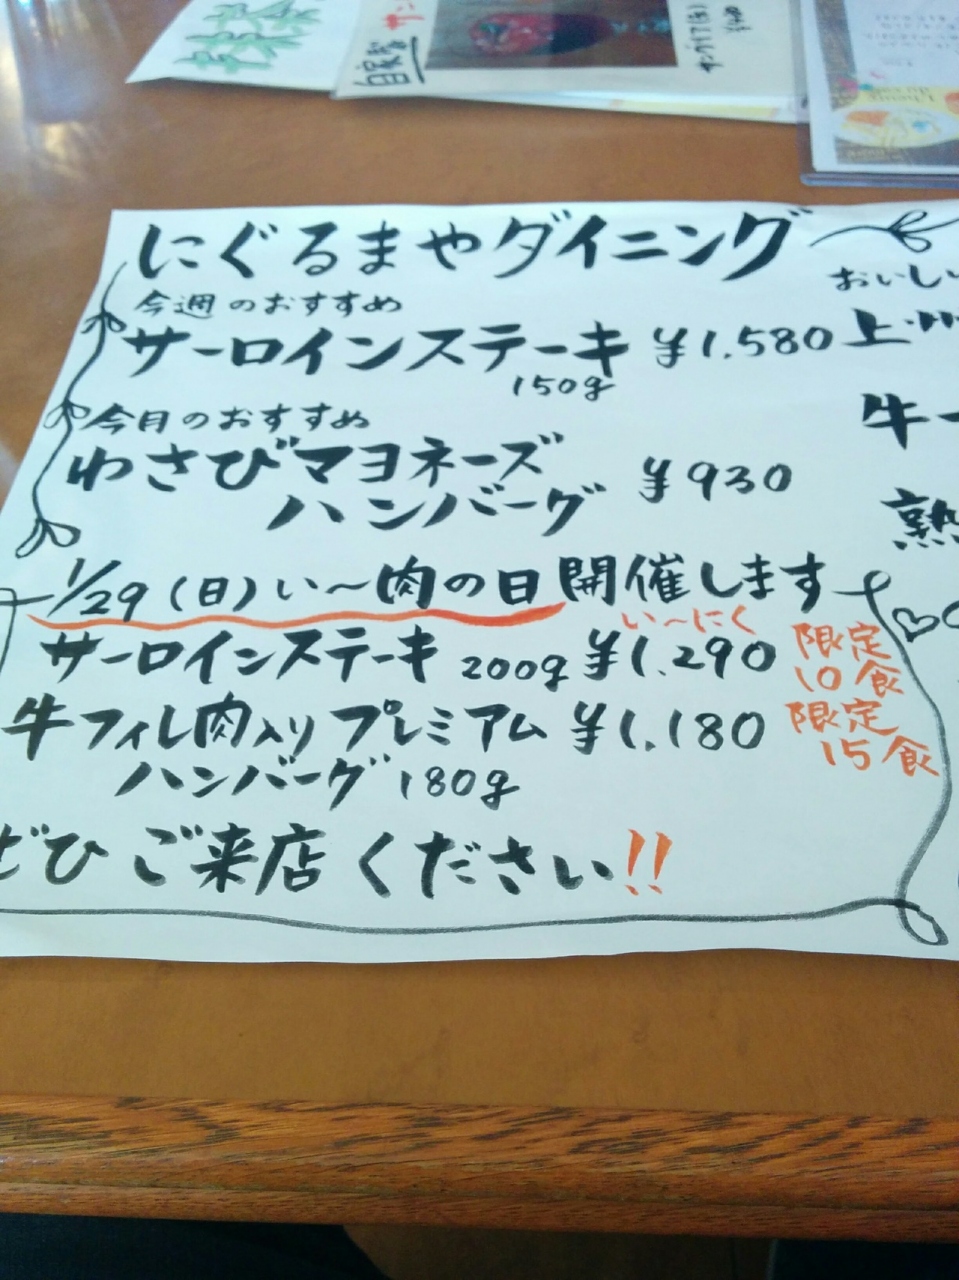 自家製
にぐるまやダイニング
今週のおすすめ
サーロインステーキ ¥1.580
150g
今月のおすすめ
わさびマヨネーズ
ハンバーグ ¥930
1/29(日)い〜肉の日開催します
い〜にく
サーロインステーキ 200g ¥1.290 限定
10食
牛フィレ肉入りプレミアム ¥1.180 限定
15食
ハンバーグ 180g
ぜひご来店ください!!
おいしい
上州
牛
熟